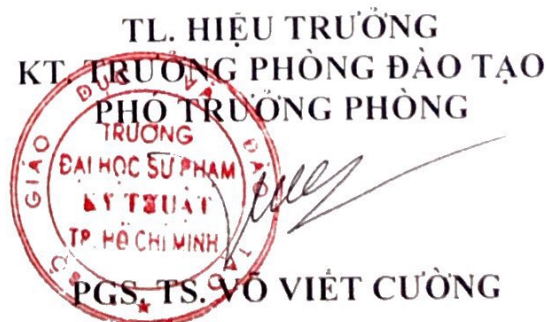 TL. HIỆU TRƯỞNG
KT. TRƯỞNG PHÒNG ĐÀO TẠO
PHÓ TRƯỞNG PHÒNG
GIÁO DỤC VÀ ĐÀO TẠO
TRƯỜNG
ĐẠI HỌC SƯ PHẠM
KỸ THUẬT
TP. HỒ CHÍ MINH
PGS. TS. VÕ VIẾT CƯỜNG